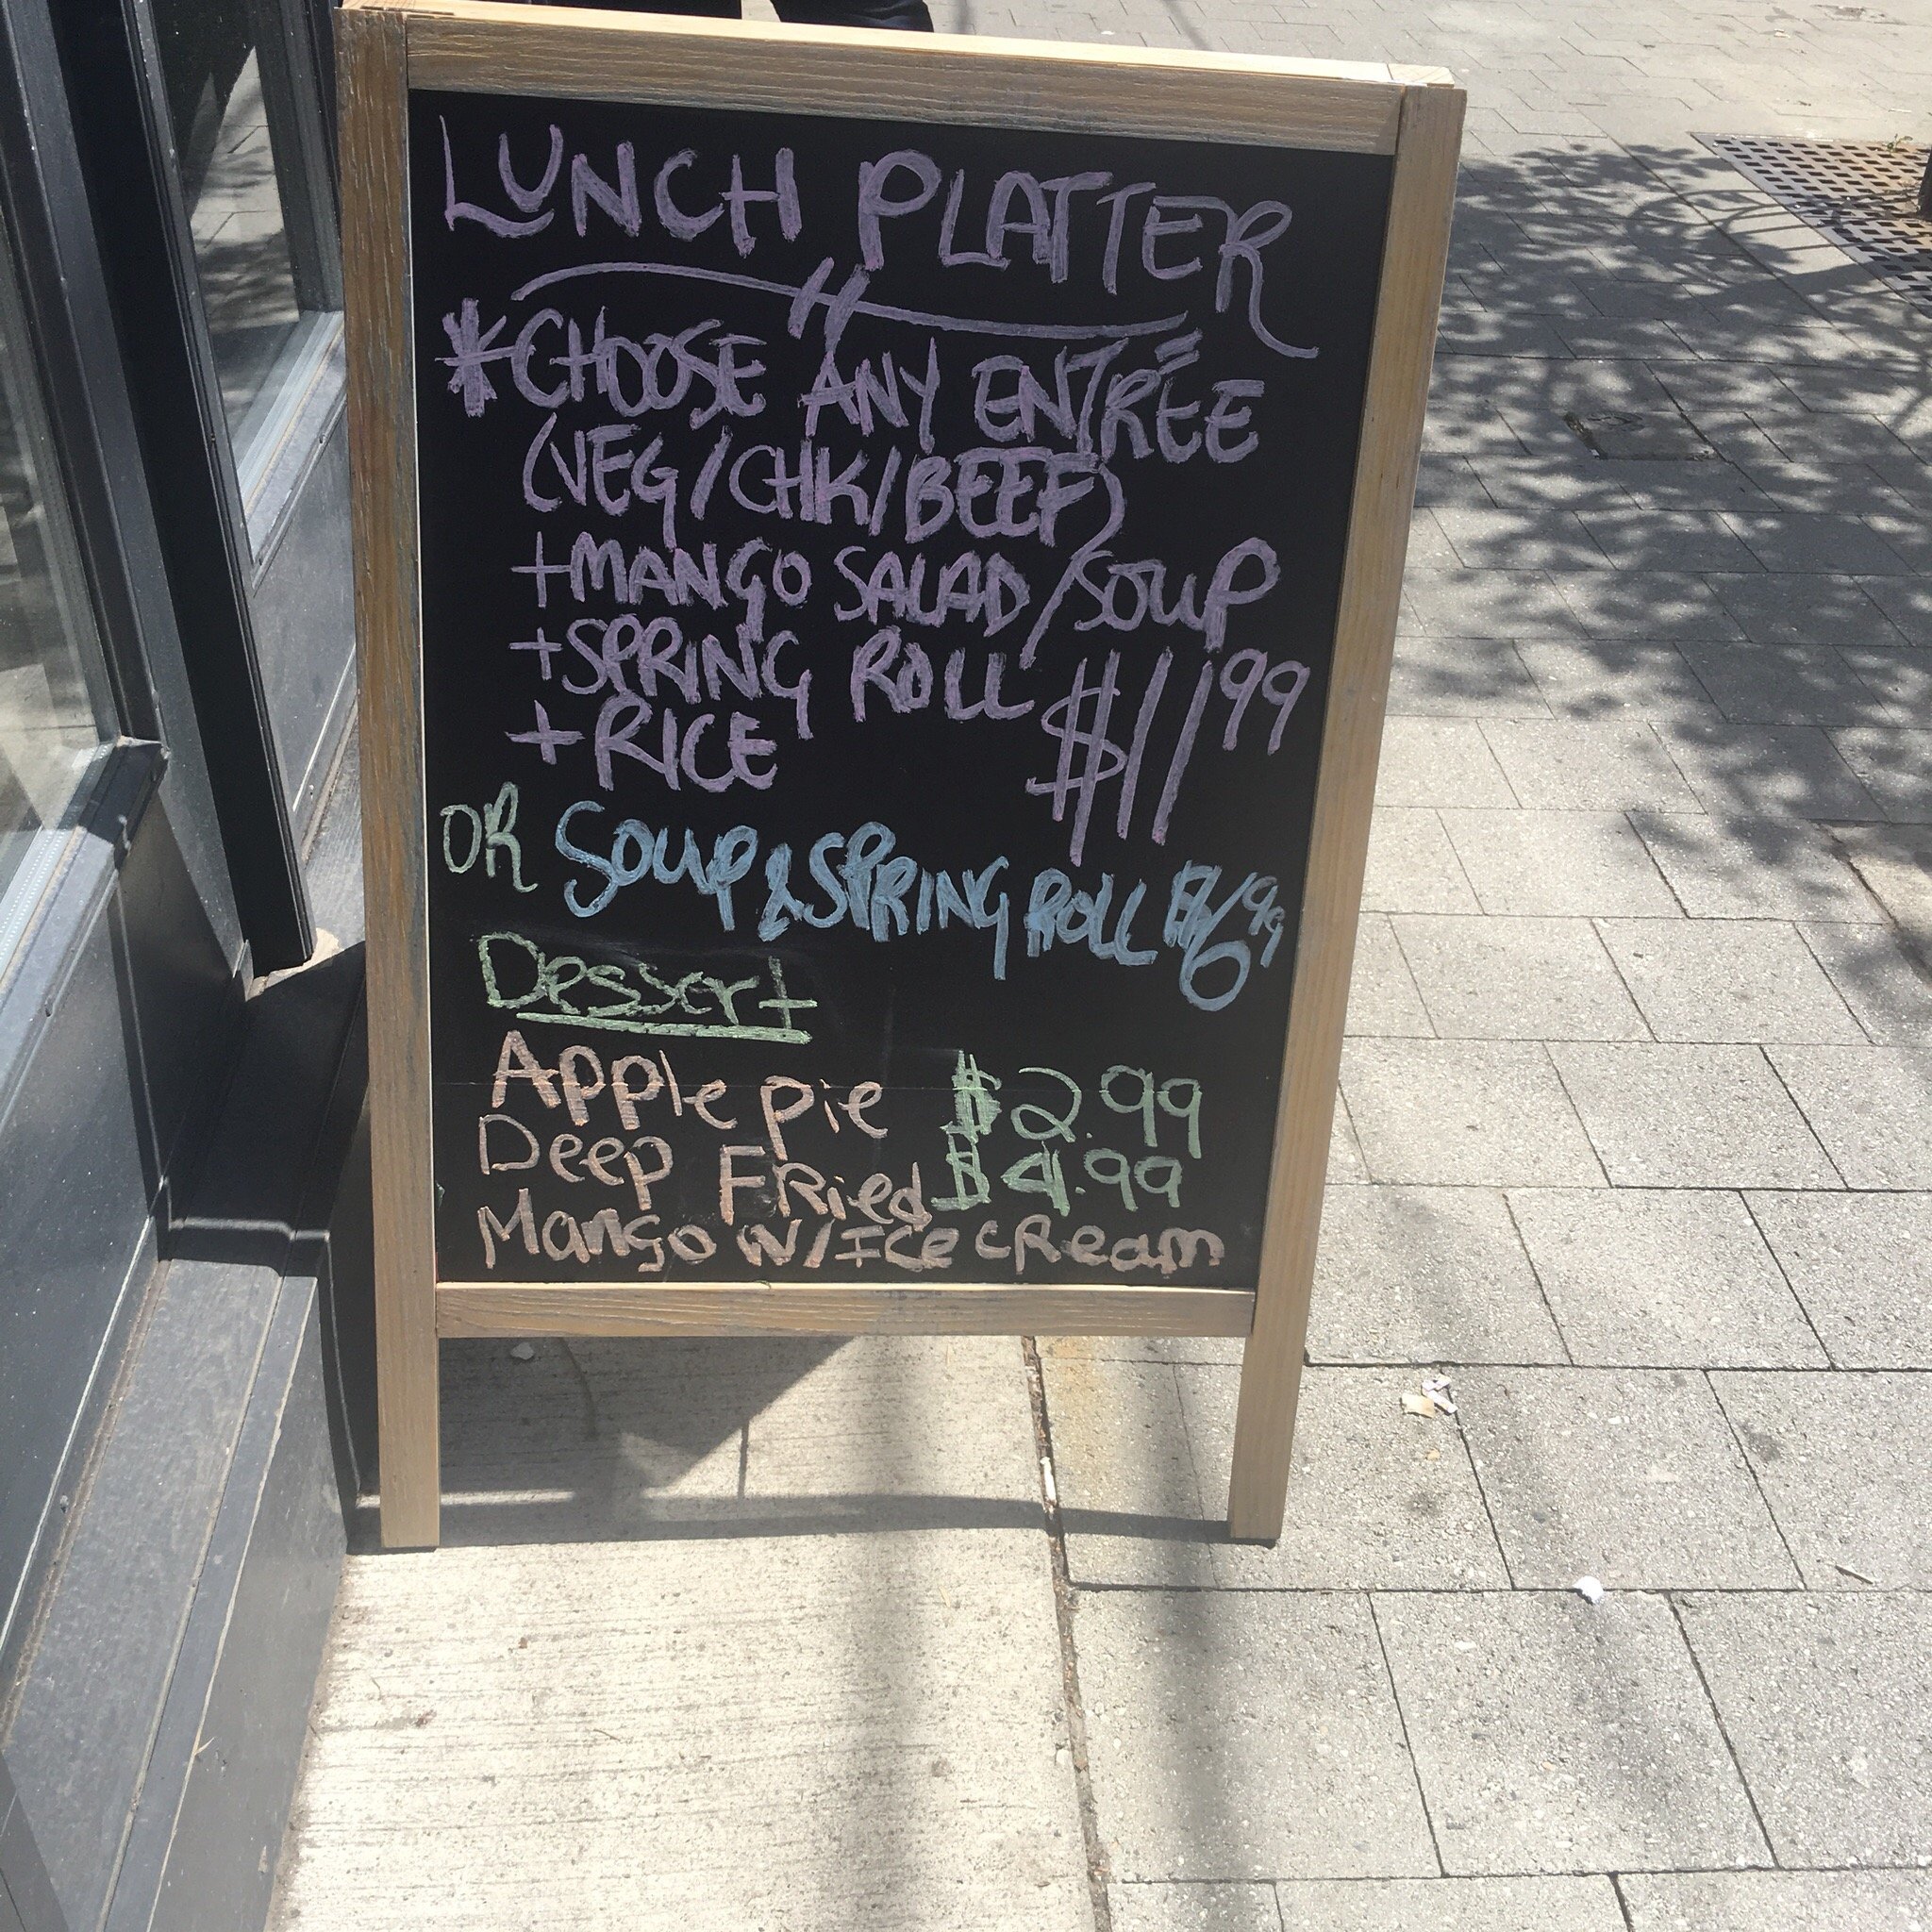 LUNCH PLATTER
*CHOOSE ANY ENTRÉE
(VEG/CHK/BEEF)
+MANGO SALAD/SOUP
+SPRING ROLL $11.99
+RICE
OR SOUP & SPRING ROLL $6.99
Dessert
Apple pie $2.99
Deep FRied $4.99
Mango w/ Ice cReam